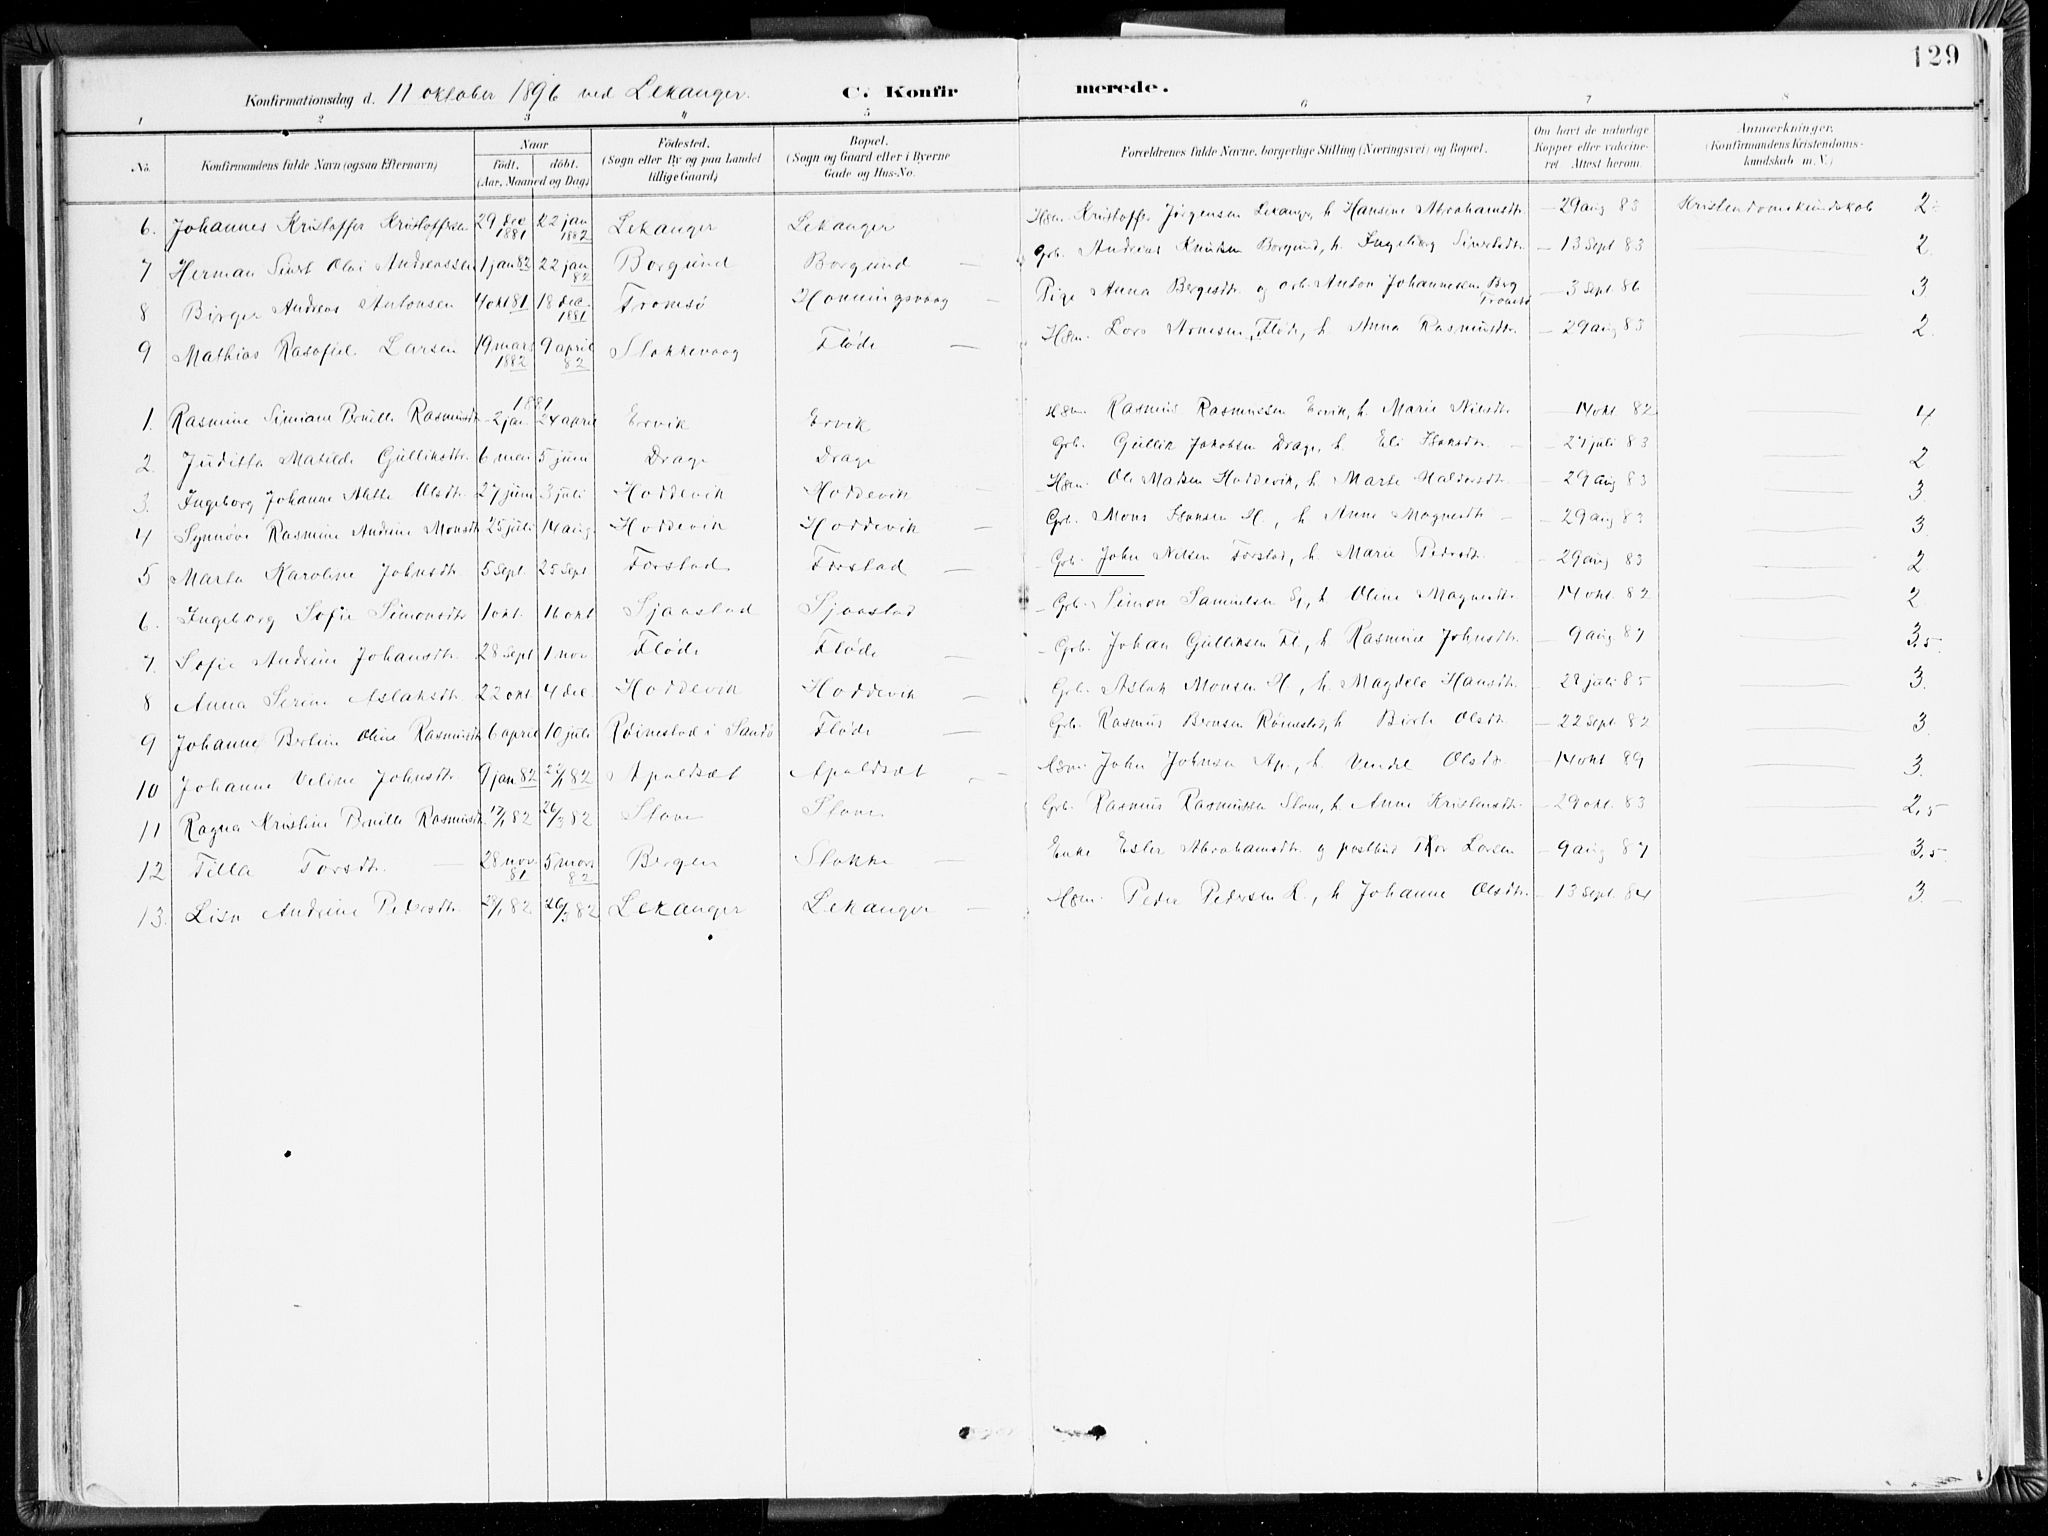 129
Konfirmationsdag d. 11 oktober 1896 ved Lekanger. C. Konfirmerede.
1 2 3 4 5 6 7 8
No. Konfirmandens fulde Navn (ogsaa Efternavn) Naar födt. döbt. (Aar, Maaned og Dag) Födested. (Sogn eller By og paa Landet tillige Gaard) Bopæl. (Sogn og Gaard eller i Byerne Gade og Hus-No. Forældrenes fulde Navne, borgerlige Stilling (Næringsvei) og Bopæl. Om havt de naturlige Kopper eller vakcineret. Attest herom. Anmærkninger. (Konfirmandens Kristendomskundskab m. V.)
6. Johannes Kristoffer Kristoffersen 29 dec 1881 22 jan 1882 Lekanger Lekanger Hsm. Kristoffer Jørgensen Lekanger, h. Hansine Abrahamsdtr. — 29 aug 83 Kristendomskundskab 2
7 Herman Sivert Olai Andreassen 1 jan 82 22 jan 82 Borgund Borgund — Grb. Andreas Knutsen Borgund, h. Ingeborg Sivertsdtr. — 13 Sept 83 — 2.
8 Birger Andreas Antonsen 4 okt 81 18 dec. 1881 Tromsø Honningsvaag — Pige Anna Bergesdtr. og arb. Anton Johannesen Berg Tromsø — 3 Sept. 86 — 3
9 Mathias Rasofiel Larsen 19 mars 1882 9 april 82 Stokkevaag Fløde — Hsm. Lars Arnesen, Fløde, h. Anna Rasmusdtr. — 29 aug 83 — 2.
1881
1. Rasmine Simiane Bentille Rasmusdtr. 2 jan. 24 april Ervik Ervik Hsm. Rasmus Rasmussen Ervik, h. Marie Nilsdtr. — 14 okt. 82 — 4
2 Juditta Matilde Gulliksdtr. 6 mai 5 juni Drage Drage Grb. Gullik Jakobsen Drage, h. Eli — 27 juli 83 — 2
3. Ingeborg Johanne Olsdtr. 27 juni 3 juli Hoddevik Hoddevik Hsm. Ole Madsen Hoddevik, h. Marte Haldorsdtr. — 29 aug 83 — 3.
4 Synnøve Rasmine Andrine Monsdtr. 25 juli 14 aug. Hoddevik Hoddevik — Grb. Mons Hansen H., h. Anne Magnesdtr. — 29 aug 83 — 3.
5 Marta Karoline Johnsdtr. 5 Sept. 25 Sept Forstad Forstad — Grb. John Nilsen Forstad, h. Marie Pedersdtr. — 29 aug 83 — 2
6. Ingeborg Sofie Simonsdtr. 1 okt. 16 okt Sjaastad Sjaastad — Grb. Simon Samuelsen Sj., h. Oline Magnesdtr. — 14 okt. 82 — 2.
7. Sofie Andrine Johansdtr. 28 Sept 1 nov Fløde Fløde — Grb. Johan Gulliksen Fl., h. Rasmine Johnsdtr. — 9 aug 87 — 3,5
8 Anna Serine Aslaksdtr. 22 okt 4 dec. Hoddevik Hoddevik — Grb. Aslak Monsen H., h. Magdele Hansdtr. — 27 juli 85 — 3.
9 Johanne Berline Oline Rasmusdtr. 6 april 10 juli Røinestad i Sandø Fløde — Grb. Rasmus Bernsen Røinestad, h. Birte Olsdtr. — 22 Sept. 82 — 3
10 Johanne Veline Johnsdtr. 9 jan 82 22/1 82 Apaldsæt Apaldsæt — Hsm. John Johnsen Ap., h. Vendel Olsdtr. — 14 okt 89 — 3.
11 Ragna Kristine Bentille Rasmusdtr. 17/1 82 26/3 82 Stave Stave Grb. Rasmus Rasmussen Stave, h. Anne Kristensdtr. — 29 okt. 83 — 2,5
12 Tilla Torsdtr. — 28 nov. 81 5 mars 82 Bergen Stokke — Enke Ester Abrahamsdtr. og postbud Thor Larsen — 9 aug 87 — 3,5
13. Lisa Andrine Pedersdtr. 29/1 82 26/3 82 Lekanger Lekanger — Hsm. Peder Pedersen L., h Johanne Olsdtr. — 13 Sept. 84 — 3.